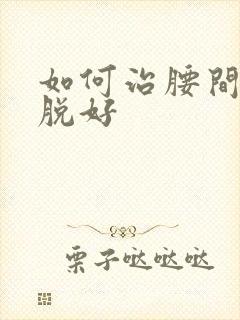 如何治腰间
脱好
栗子哒哒哒